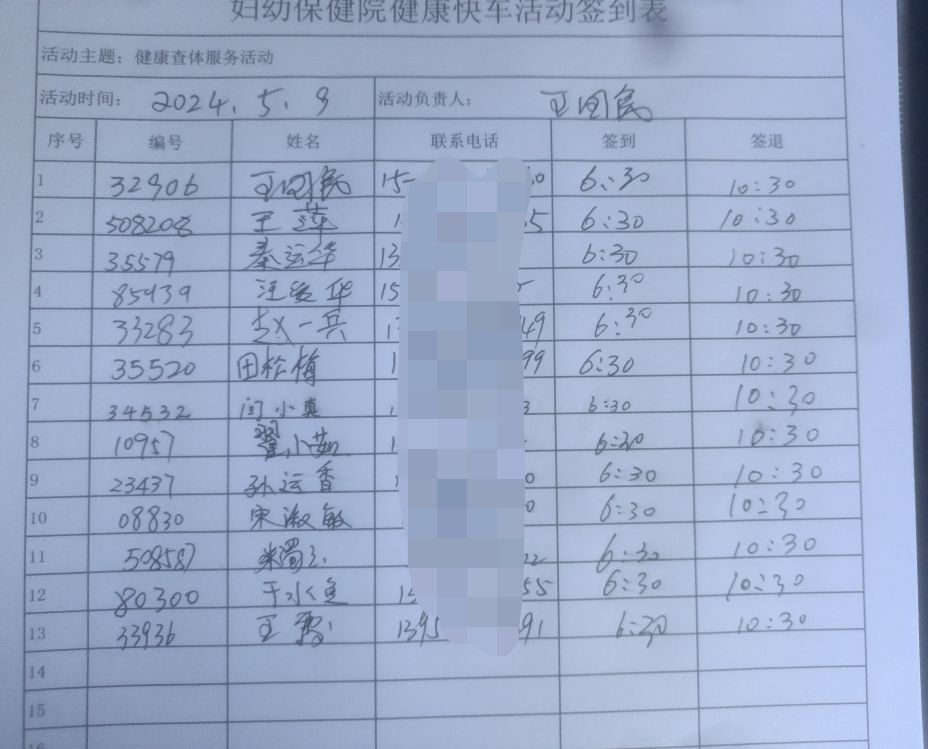 妇幼保健院健康快车活动签到表
活动主题：健康查体服务活动
活动时间： 2024.5.9 活动负责人： 王国民
序号 编号 姓名 联系电话 签到 签退
1 32906 王国民 15 0 6:30 10:30
2 508208 王莲 1 5 6:30 10:30
3 35579 秦运华 13 6:30 10:30
4 85939 汪爱华 15 6:30 10:30
5 33283 赵一兵 1 49 6:30 10:30
6 35520 田松梅 1 99 6:30 10:30
7 34532 闫小真 1 3 6:30 10:30
8 10957 翟小茹 1 6:30 10:30
9 23437 孙运香 0 6:30 10:30
10 08830 宋淑敏 0 6:30 10:30
11 508587 22 6:30 10:30
12 80300 于水鱼 15 55 6:30 10:30
13 33936 王 1395 91 6:30 10:30
14
15
16